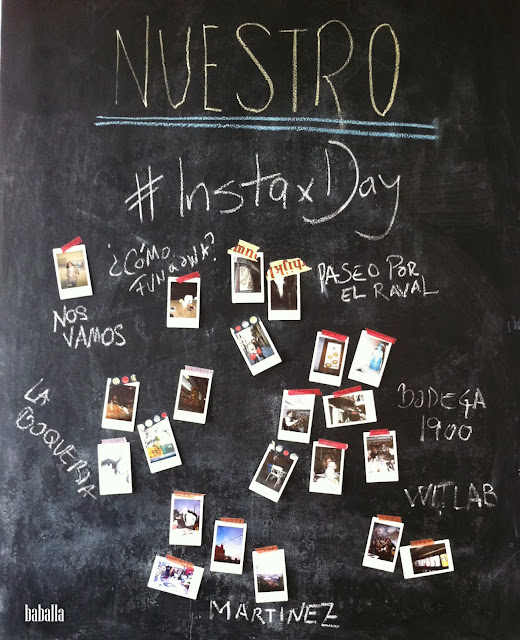 NUESTRO
#InstaxDay
¿CÓMO
FUNCIONA?
PASEO POR
EL RAVAL
NOS
VAMOS
LA
BOQUERIA
BODEGA
1900
WITLAB
MARTINEZ
baballa